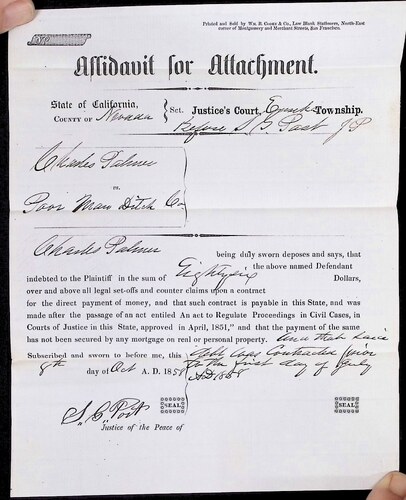 Printed and Sold by WM. B. COOKE & CO., Law Blank Stationers, North-East
corner of Montgomery and Merchant Streets, San Francisco.
Affidavit for Attachment.
State of California,
COUNTY OF Nevada
Sct. Justice's Court, Eureka Township.
Before S G Post J P
Charles Palmer
vs.
Poor Man Ditch Co
Charles Palmer
being duly sworn deposes and says, that
the above named Defendant
indebted to the Plaintiff in the sum of Eighty six
Dollars,
over and above all legal set-offs and counter claims upon a contract
for the direct payment of money, and that such contract is payable in this State, and was
made after the passage of an act entitled An act to Regulate Proceedings in Civil Cases, in
Courts of Justice in this State, approved in April, 1851," and that the payment of the same
has not been secured by any mortgage on real or personal property. And that said
Subscribed and sworn to before me, this debt was Contracted prior
8th day of Oct A. D. 1858 to the first day of July
A.D. 1858
S. G. Post SEAL SEAL
Justice of the Peace of